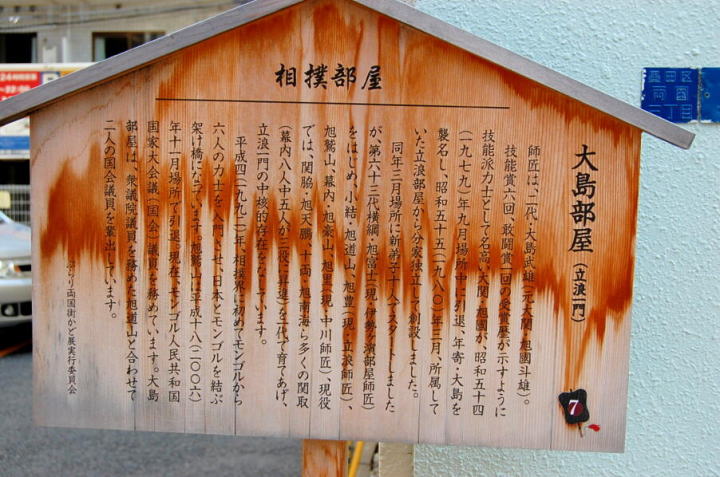 相撲部屋
大島部屋(立浪一門)
師匠は、二代・大島武雄(元大関・旭國斗雄)。
技能賞六回、敢闘賞一回の受賞歴が示すように
技能派力士として名高い大関・旭國が、昭和五十四
(一九七九)年九月場所中に引退、年寄・大島を
襲名し、昭和五十五(一九八〇)年三月、所属して
いた立浪部屋から分家独立して創設しました。
同年三月場所に新弟子十八人でスタートしました
が、第六十三代横綱・旭富士(現・伊勢ヶ濱部屋師匠)
をはじめ、小結・旭道山、旭豊(現・立浪師匠)、
旭鷲山、幕内・旭豪山、旭里(現・中川師匠)、現役
では、関脇・旭天鵬、十両・旭南海ら多くの関取
(幕内八人中五人が三役に昇進)を一代で育てあげ、
立浪一門の中核的存在をなしています。
平成四(一九九二)年、相撲界に初めてモンゴルから
六人の力士を入門させ、日本とモンゴルを結ぶ
架け橋になっています。旭鷲山は平成十八(二〇〇六)
年十一月場所で引退。現在、モンゴル人民共和国
国家大会議(国会)議員を務めています。大島
部屋は、衆議院議員を務めた旭道山と合わせて
二人の国会議員を輩出しています。
ぶらり両国街かど展実行委員会
7
墨田区
両国
二丁目